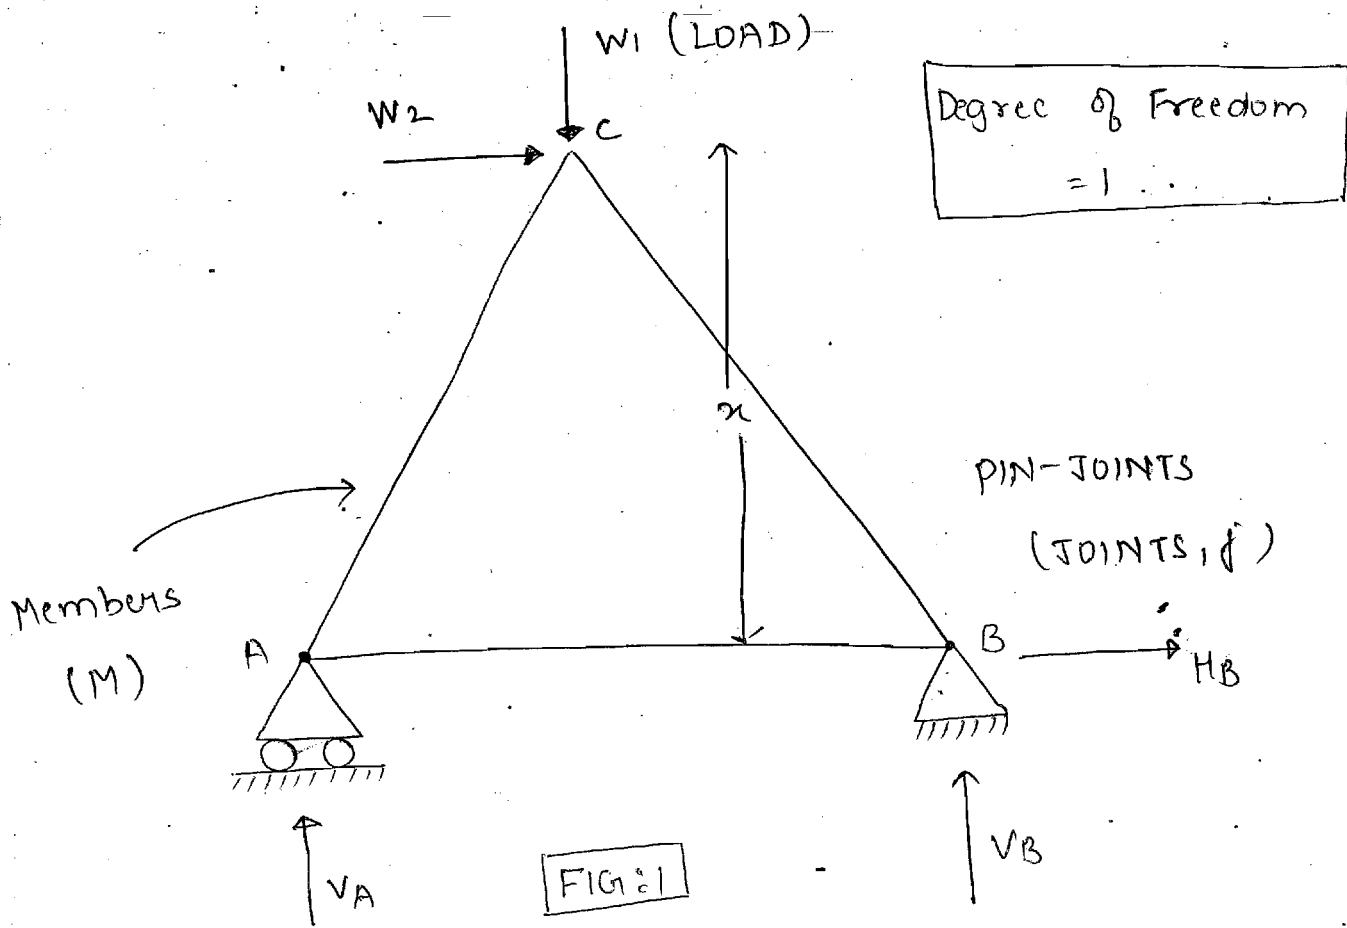 W1 (LOAD)
W2
C
Degree of Freedom
= 1
x
PIN-JOINTS
(JOINTS, j)
Members
(M)
A
B
HB
VA
VB
FIG:1